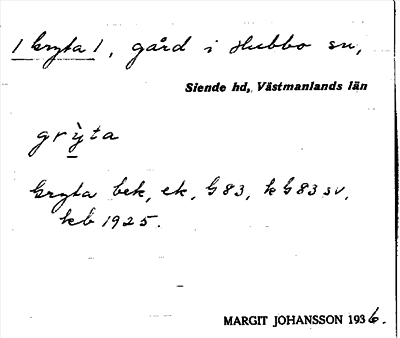 / Gryta /, gård i Hubbo sn,
Siende hd, Västmanlands län
grỳta
Gryta bek, ek, G 83, k G 83 sv,
kb 1925.
MARGIT JOHANSSON 1936.